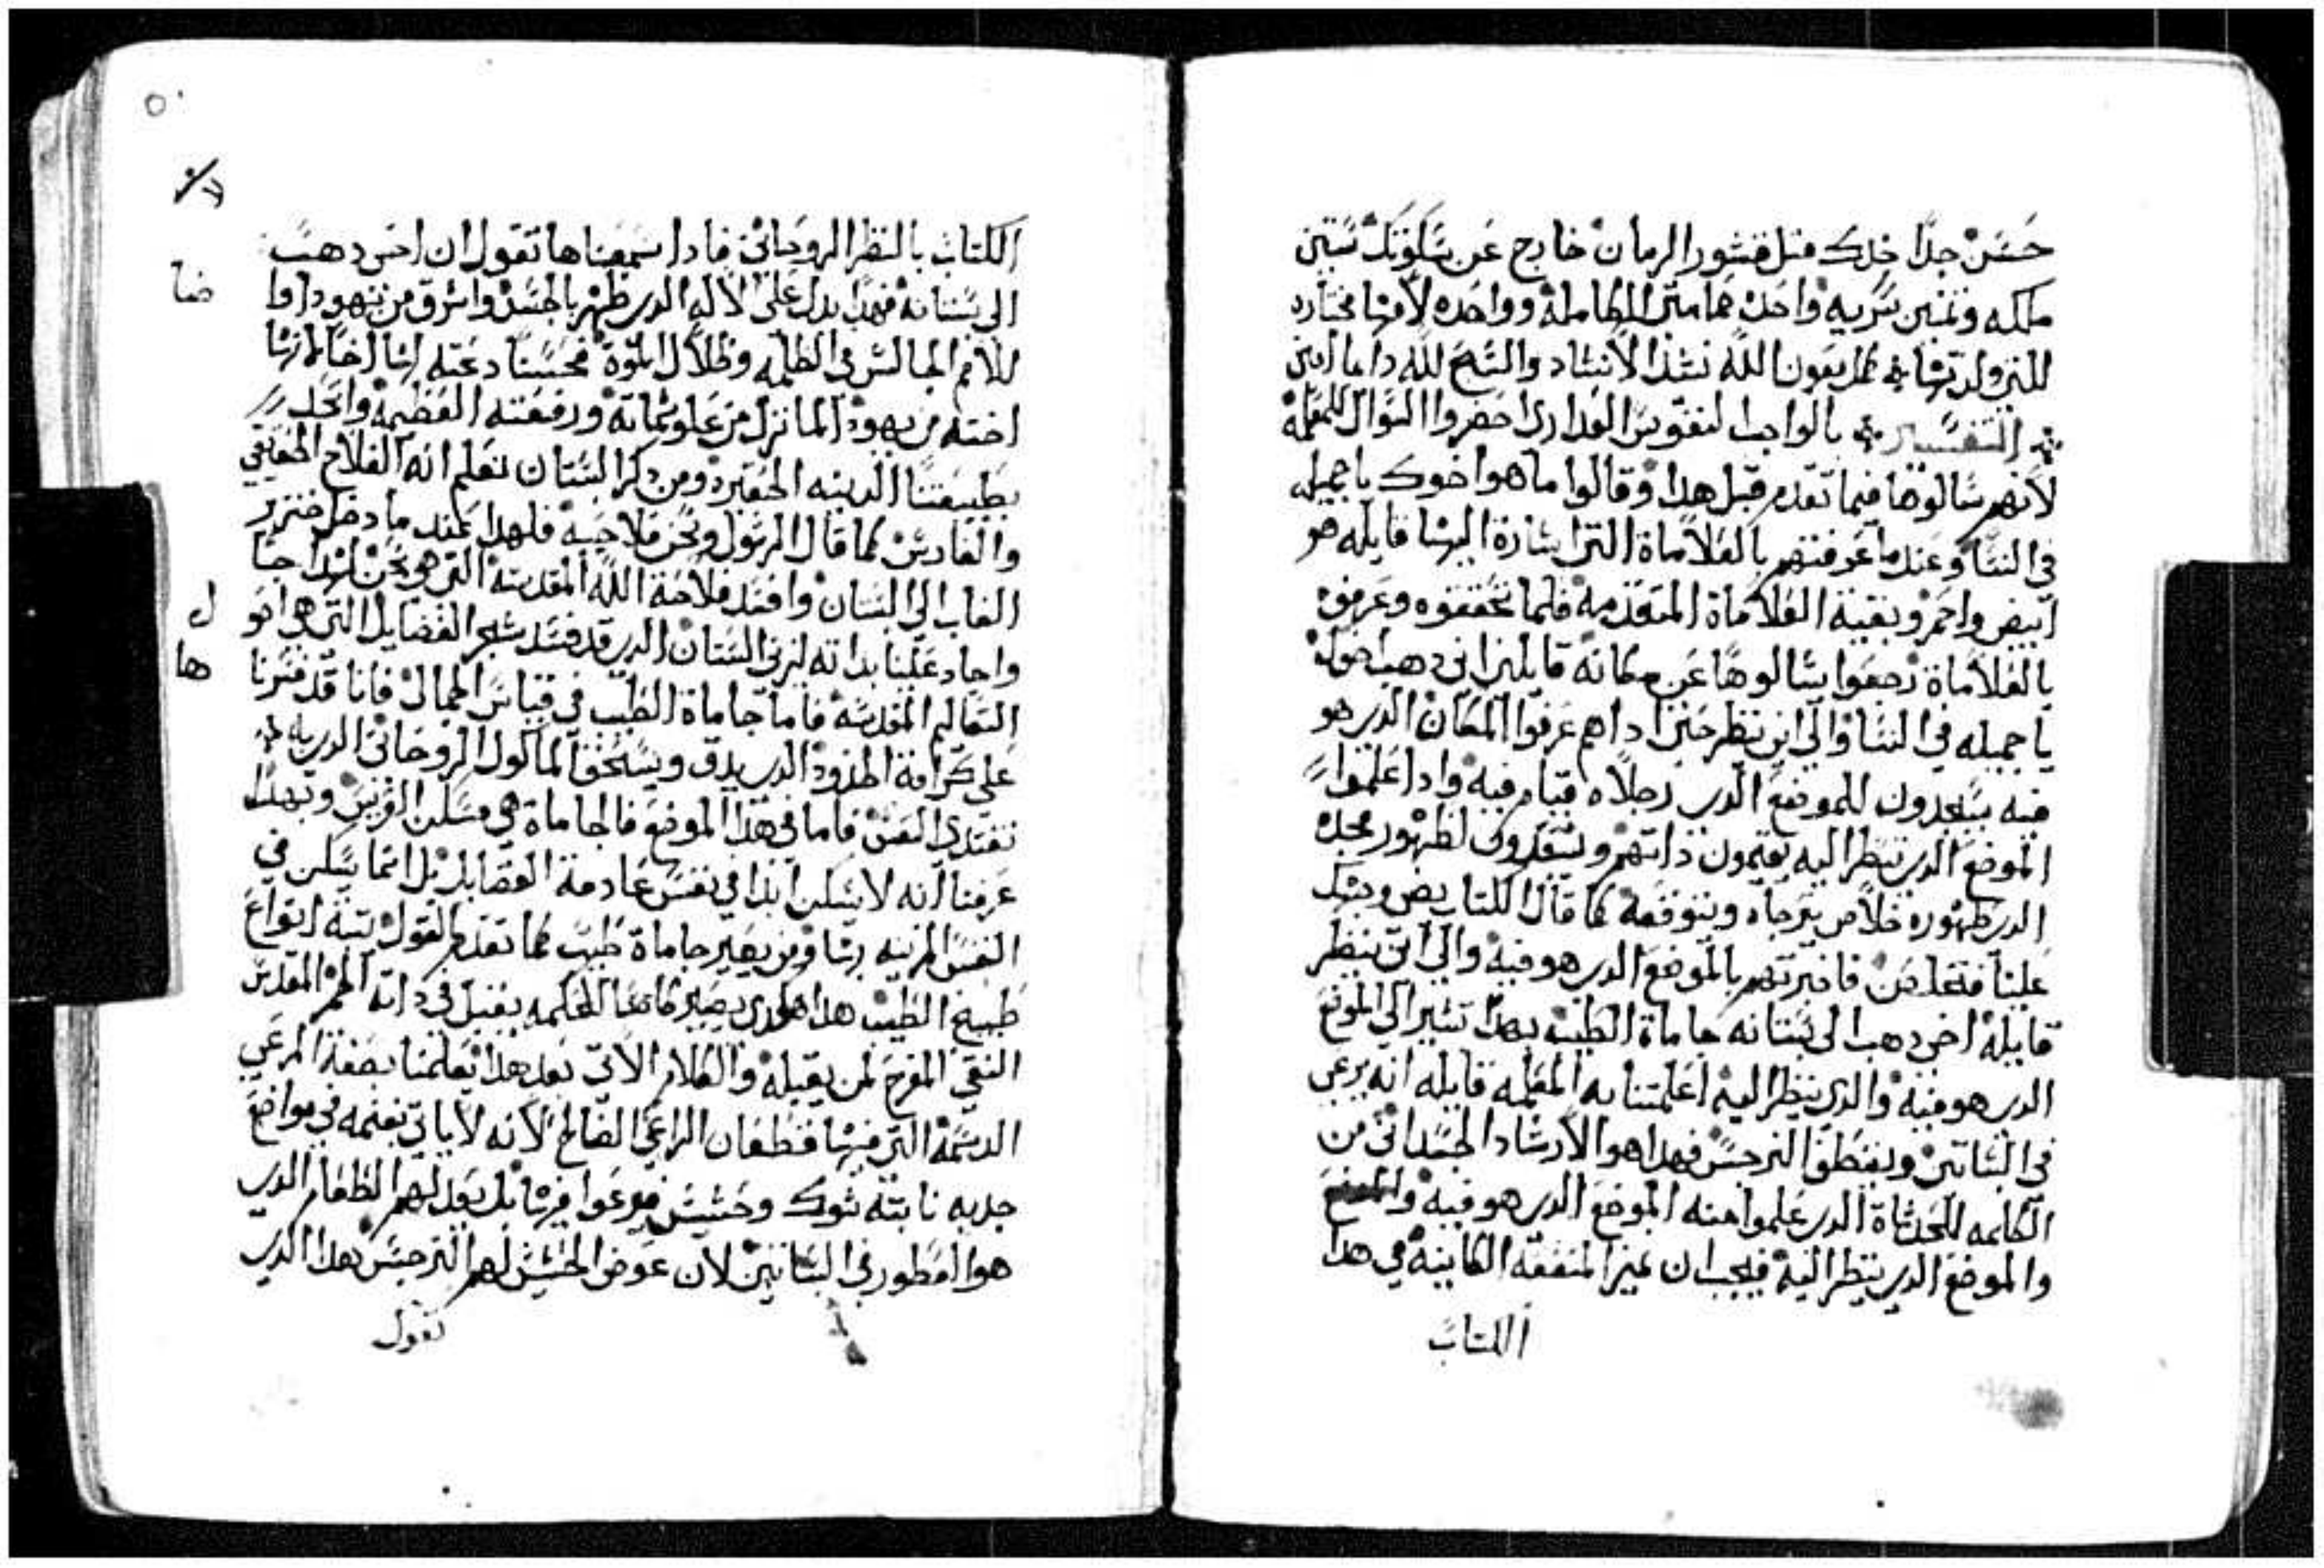 حسن جدًا خدك مثل قشور الرمان خارج عن سكوتك ستين
ملكه وثمنين سريه واحده هى حمامتى الكاملة وواحده لامها مختاره
للتى ولدتها كمل بعون الله نشد الانشاد والسبح لله دايما امين
التفسير بالواجب لنفوس العدارى احضروا السوال للمعلمة
لانهم سالوها فيما تقدم قبل هدا وقالوا ما هوا اخوك يا جميله
فى النسا وعند ما عرفتهم بالعلاماة التى اشارة اليها قايله هو
ابيض واحمر وبقية العلاماة المتقدمة فلما تحققوه وعرفوه
بالعلاماة رجعوا يسالوها عن مكانه قايلين اين دهب اخوك
يا جميله فى النسا والى اين نظر حتى ادا هم عرفوا المكان الدى هو
فيه يسجدون للموضع الدى رجلاه قيام فيه وادا علموا
الموضع الدى ينظر اليه يقيمون داتهم ويستعدون لظهور مجده
الدى ظهوره خلاص يترجاه ويتوقعه كما قال الكتاب يضى وجهك
علينا فنخلص فاخبرتهم بالموضع الدى هو فيه والى اين ينظر
قايلة اخى دهب الى بستانه جاماة الطيب بهدا تشير الى الموضع
الدى هو فيه والدى ينظر اليه اعلمتنا به المعلمه قايله انه يرعى
فى البساتين ويقتطف النرجس فهدا هو الارشاد الجسدانى من
الكلمه للحدثاة الدى علموا منه الموضع الدى هو فيه
والموضع الدى ينظر اليه فيجب ان نميز المنفعه الكاينة فى هدا
الكتاب
٥٠
الكتاب بالنظر الروحانى فادا سمعناها تقول ان اخى دهب
الى بستانه فهدا يدل على الاله الدى ظهر بالجسد واشرق من يهودا
للامم الجالسين فى الظلمه وظلال الموة فحسنًا دعته
اخته من يهودا لما نزل من علو سماته ورفعته العظيمة واتحد
بطبيعتنا الدنيه الحقيره ومن دكر البستان نعلم انه الفلاح الحقيقى
والغارس كما قال الرسول ونحن فلاحته فلهدا عند ما دخل خنزير
الغاب الى البستان وافسد فلاحة الله المقدسة التى هى نحن لهدا جا
واجاد علينا بداته ليزين البستان الدى قد فسد شجر الفضايل التى هى
التعاليم المقدسه فاما جاماة الطيب فى قياس الجمال فانا قد فسرنا
على كرامة الخدود الدى يدق ويسحق الماكول الروحانى الدى به
تغتدى النفس فاما فى هدا الموضع فالجاماة هى مسكن العريس وبهدا
عرفنا انه لا يسكن ابدا فى نفس عادمة الفضايل بل انما يسكن فى
النفس المزينه ومن يصير جاماة طيب كما تقدم القول ستة انواع
طبيخ الطيب هدا هكدى يصير للحكمه يقبل فى داته الخمر المقدس
النقى المفرح لمن يقبله والكلام الاتى بعد هدا يعلمنا بصفة المرعى
الدسمة التى فيها قطعان الراعى الصالح لانه لا ياتى بغنمه فى مواضع
جدبه نابتة شوك وحشيش فيرعوا فيها بل يعد لهم الطعام الدى
هو العطور فى البساتين لان عوض الحشيش لهم النرجس هدا الدى
نقول
ها